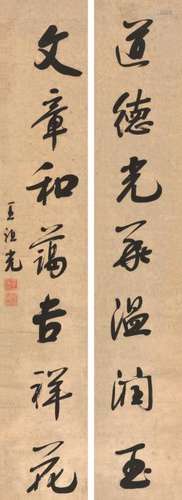 道德光華溫潤玉
文章和藹吉祥花
王祖光